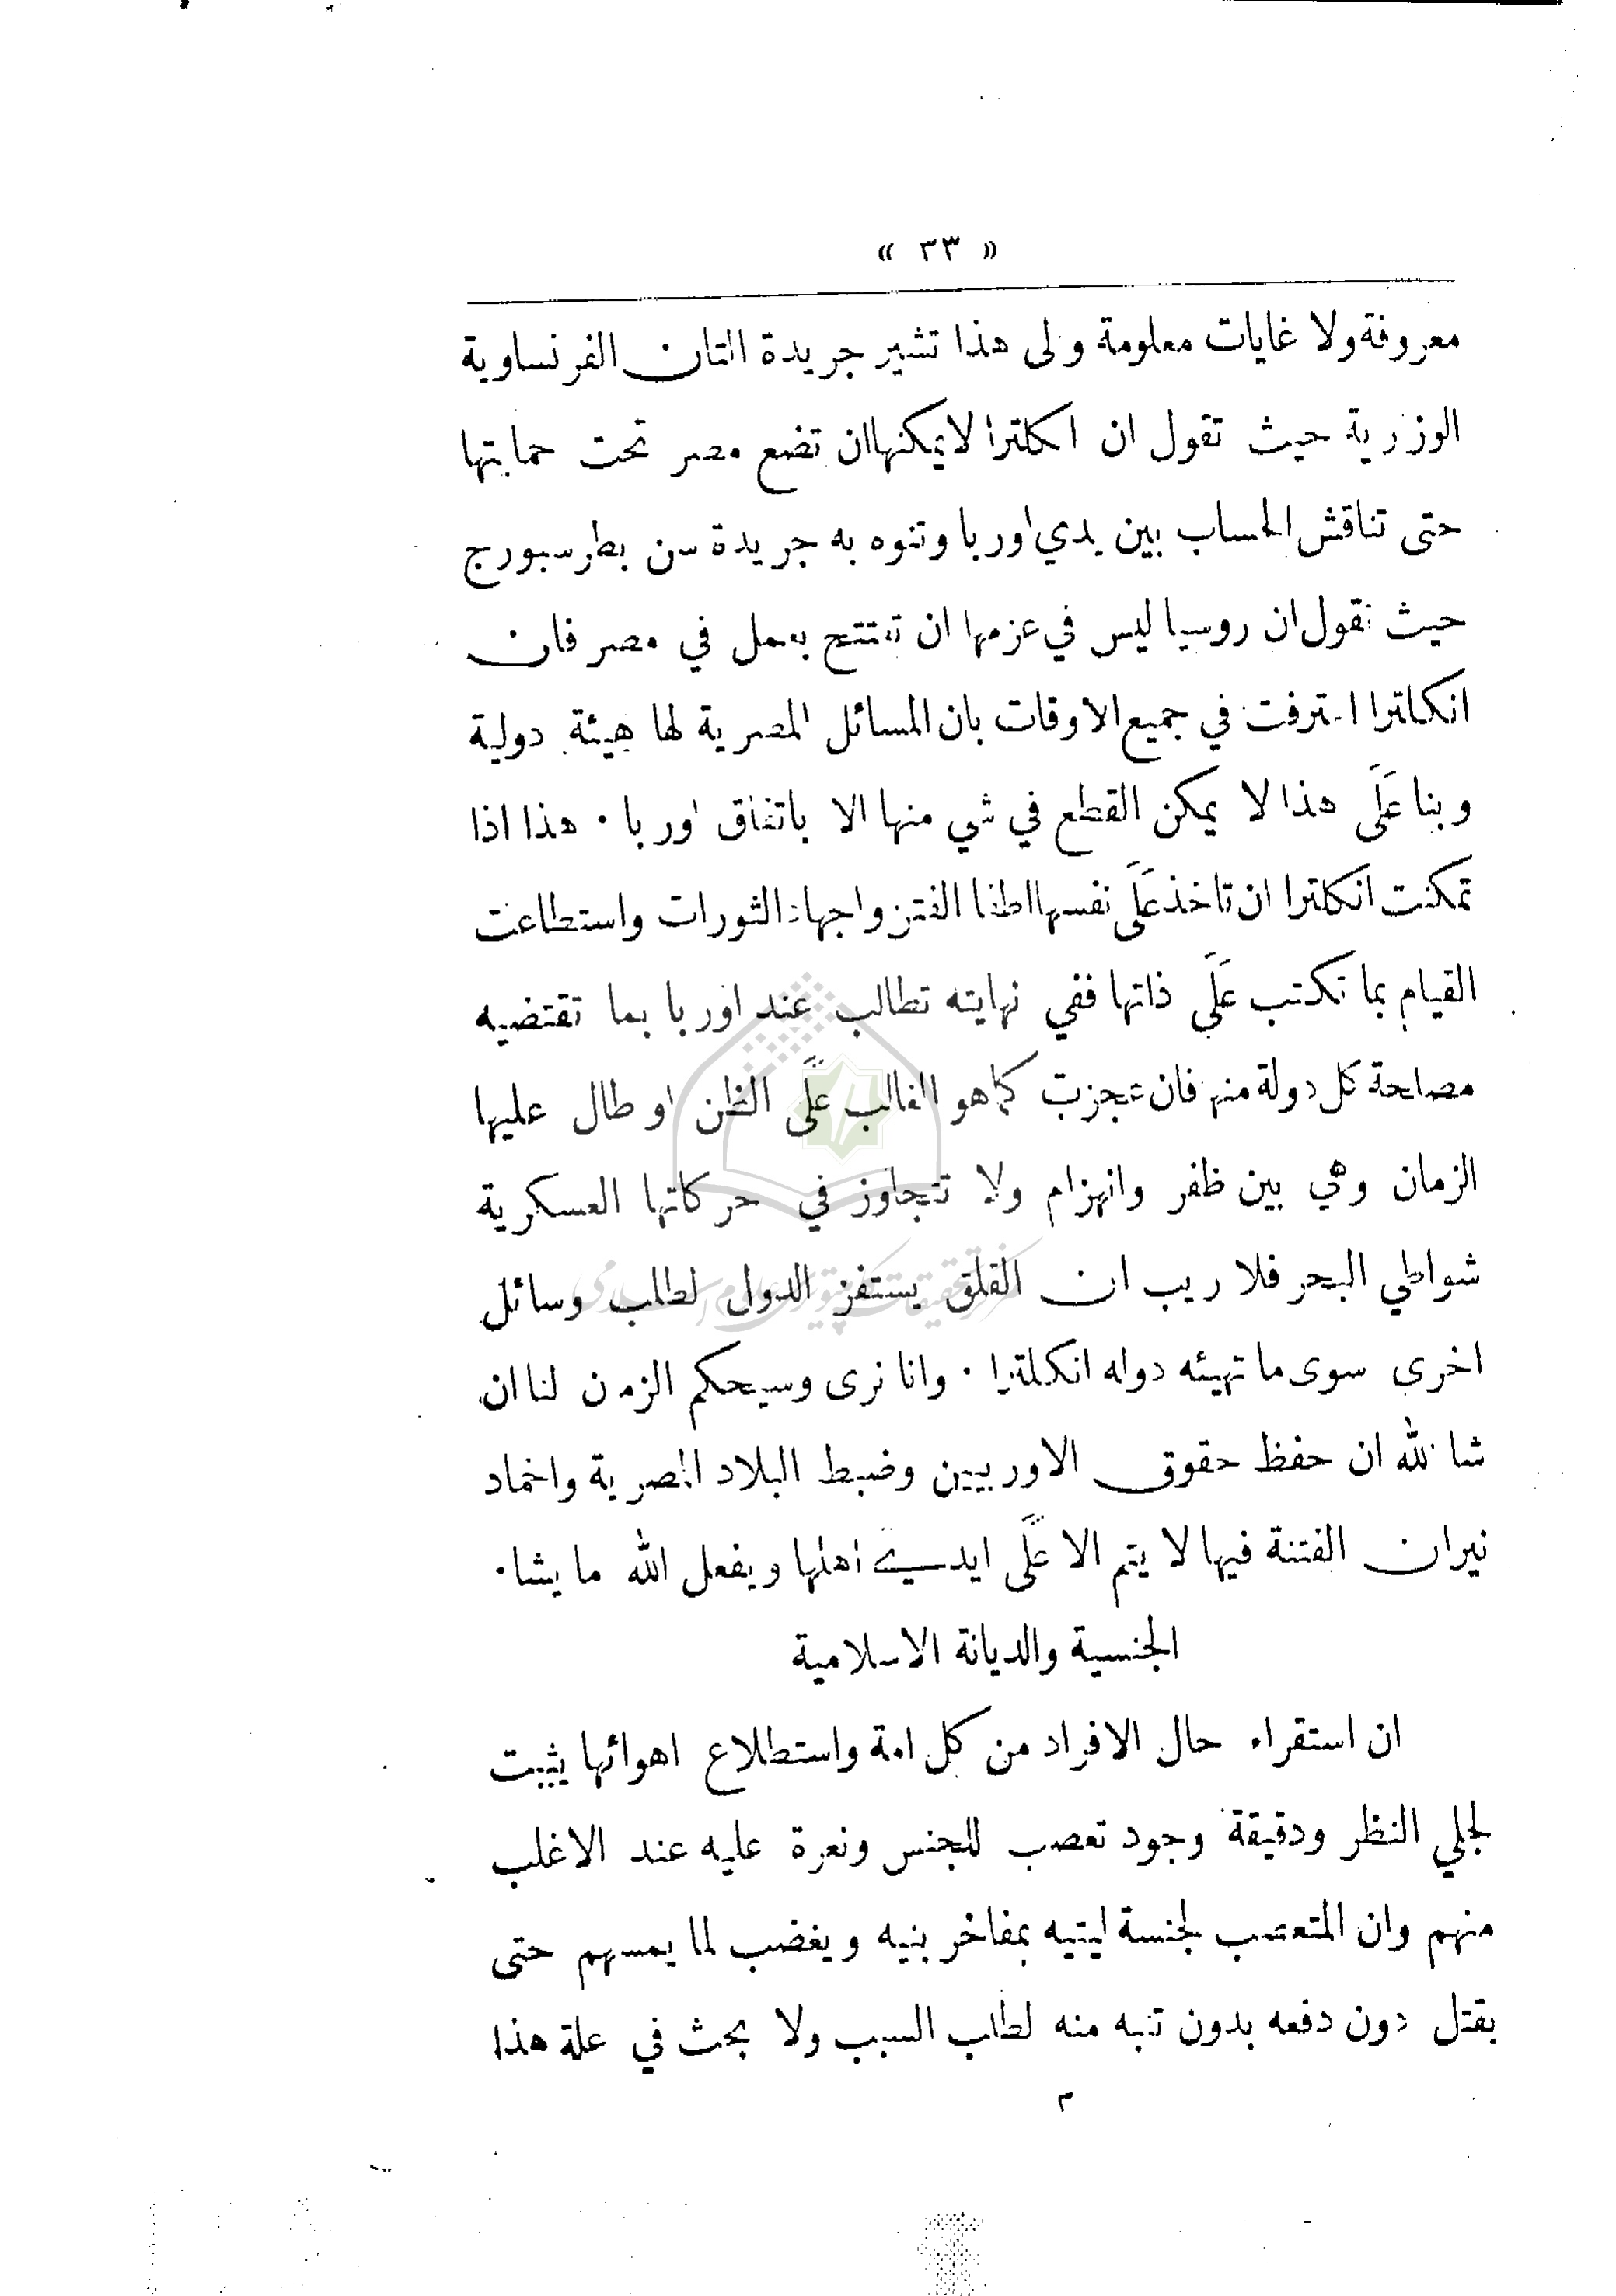 « ٣٣ »
معروفة ولا غايات معلومة والى هذا تشير جريدة التان الفرنساوية
الوزرية حيث تقول ان انكلترا لا يمكنها ان تضع مصر تحت حمايتها
حتى تناقش الحساب بين يدي اوربا وتنوه به جريدة سن بطرسبورج
حيث تقول ان روسيا ليس في عزمها ان تفتتح بعمل في مصر فان
انكلترا اعترفت في جميع الاوقات بان المسائل المصرية لها هيئة دولية
وبنا عَلَى هذا لا يمكن القطع في شي منها الا باتفاق اوربا · هذا اذا
تمكنت انكلترا ان تاخذ عَلَى نفسها اطفا الفتن واجهاد الثورات واستطاعت
القيام بما تكتب عَلَى ذاتها ففي نهايته تطالب عند اوربا بما تقتضيه
مصلحة كل دولة منهم فان عجزت كما هو الغالب عَلَى الظن او طال عليها
الزمان وهي بين ظفر وانهزام ولا تتجاوز في حركاتها العسكرية
شواطي البحر فلا ريب ان القلق يستفز الدول لطلب وسائل
اخرى سوى ما تهيئه دوله انكلترا · وانا نرى وسيحكم الزمن لنا ان
شا الله ان حفظ حقوق الاوربيين وضبط البلاد المصرية واخماد
نيران الفتنة فيها لا يتم الا عَلَى ايدي اهلها ويفعل الله ما يشا ·
الجنسية والديانة الاسلامية
ان استقراء حال الافراد من كل امة واستطلاع اهوائها يثبت
لجلي النظر ودقيقة وجود تعصب للجنس ونعرة عليه عند الاغلب
منهم وان المتعصب لجنسة ليتيه بمفاخر بنيه ويغضب لما يمسهم حتى
يقتل دون دفعه بدون تنبه منه لطلب السبب ولا بحث في علة هذا
م
مركز تحقيقات كامپيوترى علوم اسلامى